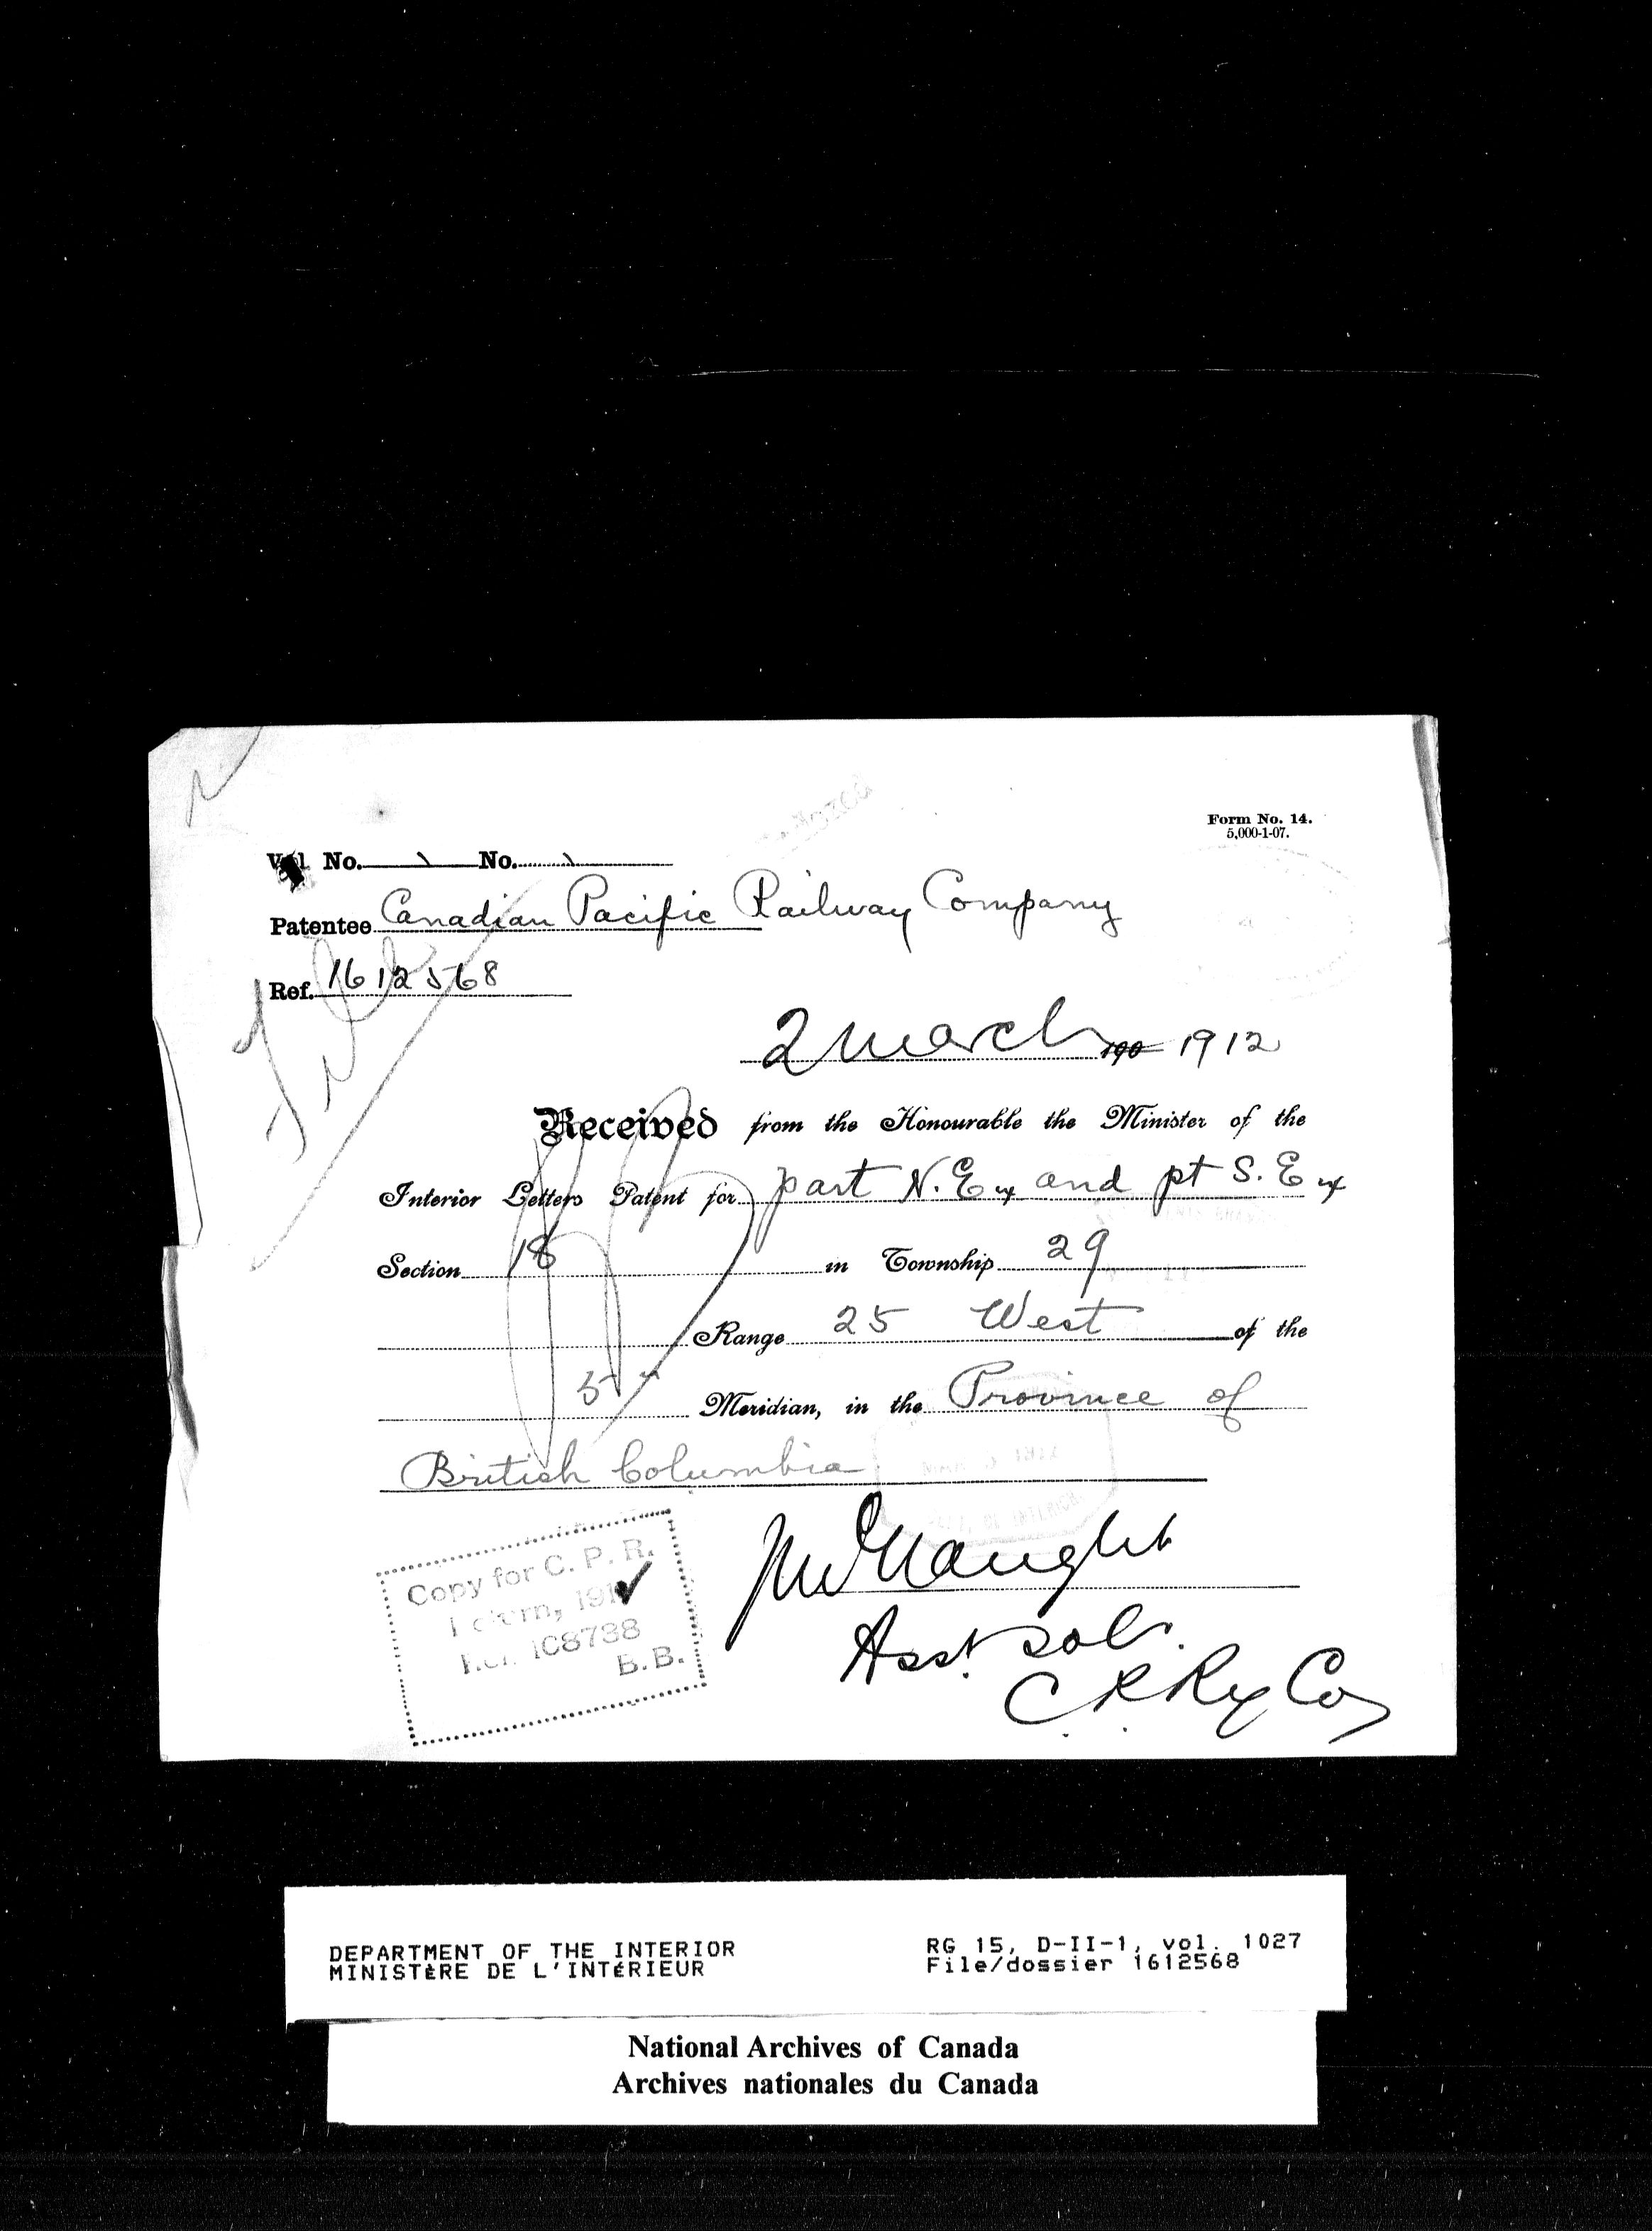 Form No. 14.
5,000-1-07.
Vol. No. No.
Patentee Canadian Pacific Railway Company
Ref. 1612568
2 March 190 1912
Received from the Honourable the Minister of the
Interior Letters Patent for part N.E. ¼ and pt S.E. ¼
Section 18 in Township 29
Range 25 West of the
5 Meridian, in the Province of
British Columbia
McNaught
Asst. Solr.
C.P. Ry Co
Copy for C. P. R.
108738
B.B.
DEPARTMENT OF THE INTERIOR
MINISTÈRE DE L'INTÉRIEUR
RG 15, D-II-1, vol. 1027
File/dossier 1612568
National Archives of Canada
Archives nationales du Canada